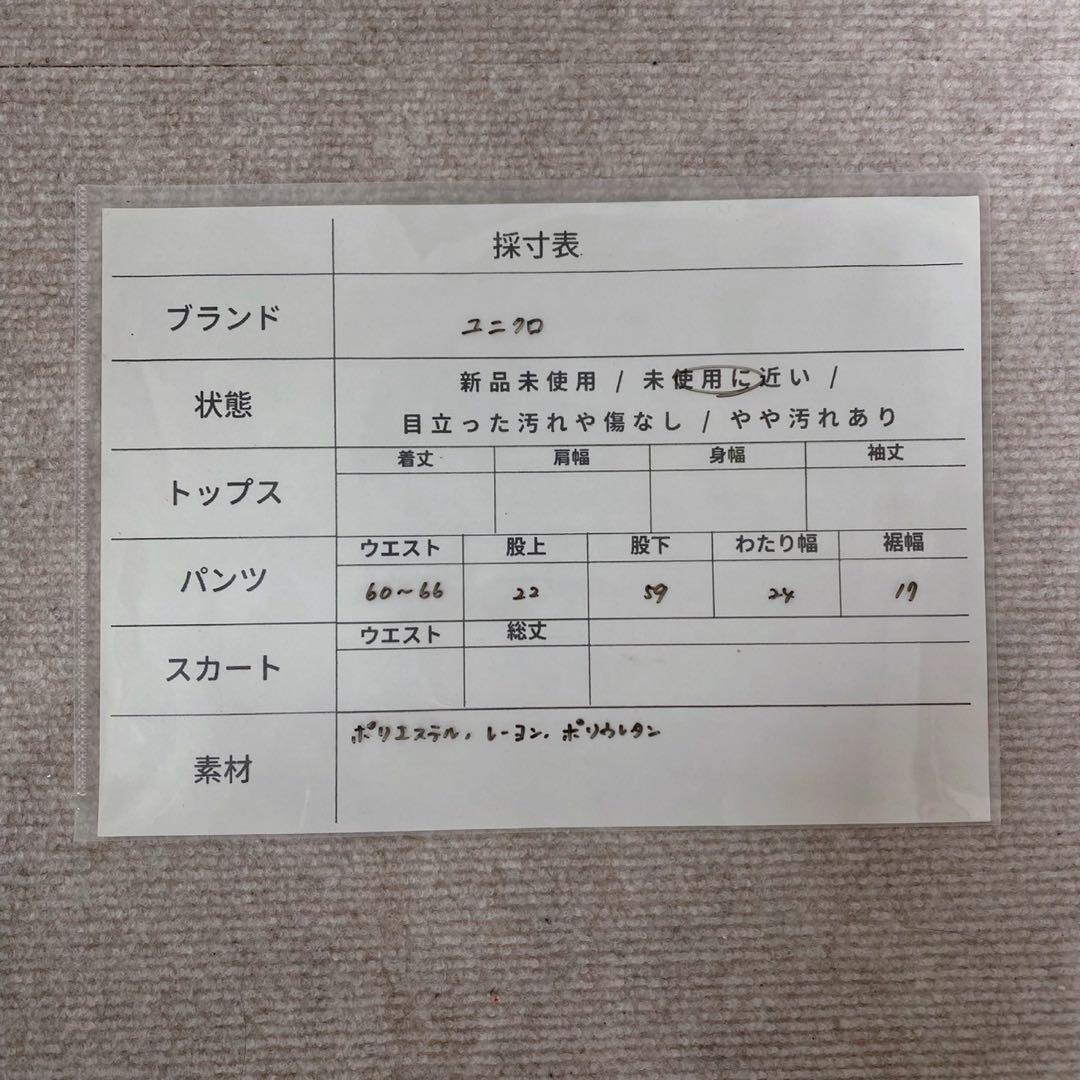 採寸表
ブランド
ユニクロ
状態
新品未使用 / 未使用に近い /
目立った汚れや傷なし / やや汚れあり
トップス
着丈 肩幅 身幅 袖丈
パンツ
ウエスト 股上 股下 わたり幅 裾幅
60~66 22 59 24 17
スカート
ウエスト 総丈
素材
ポリエステル, レーヨン, ポリウレタン